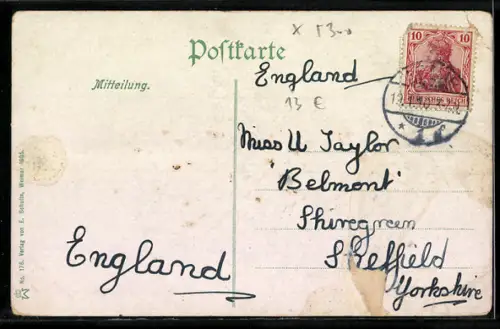 Postkarte
x 13.–
10 10
DEUTSCHES REICH
England
Mitteilung.
13 E
Miss U Taylor
'Belmont'
Shiregreen
Sheffield
Yorkshire
England
No. 176. Verlag von Z. Schulte, Weimar 1905.